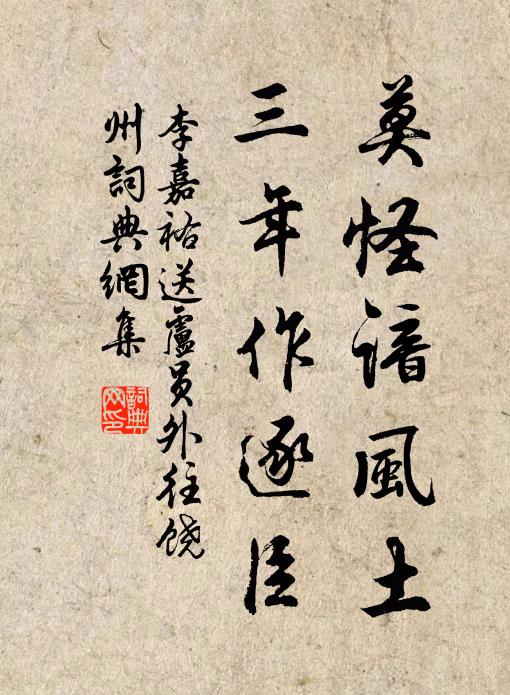 莫怪諳風土
三年作逐臣
李嘉祐送盧員外往饒
州詞典網集
詞典网印